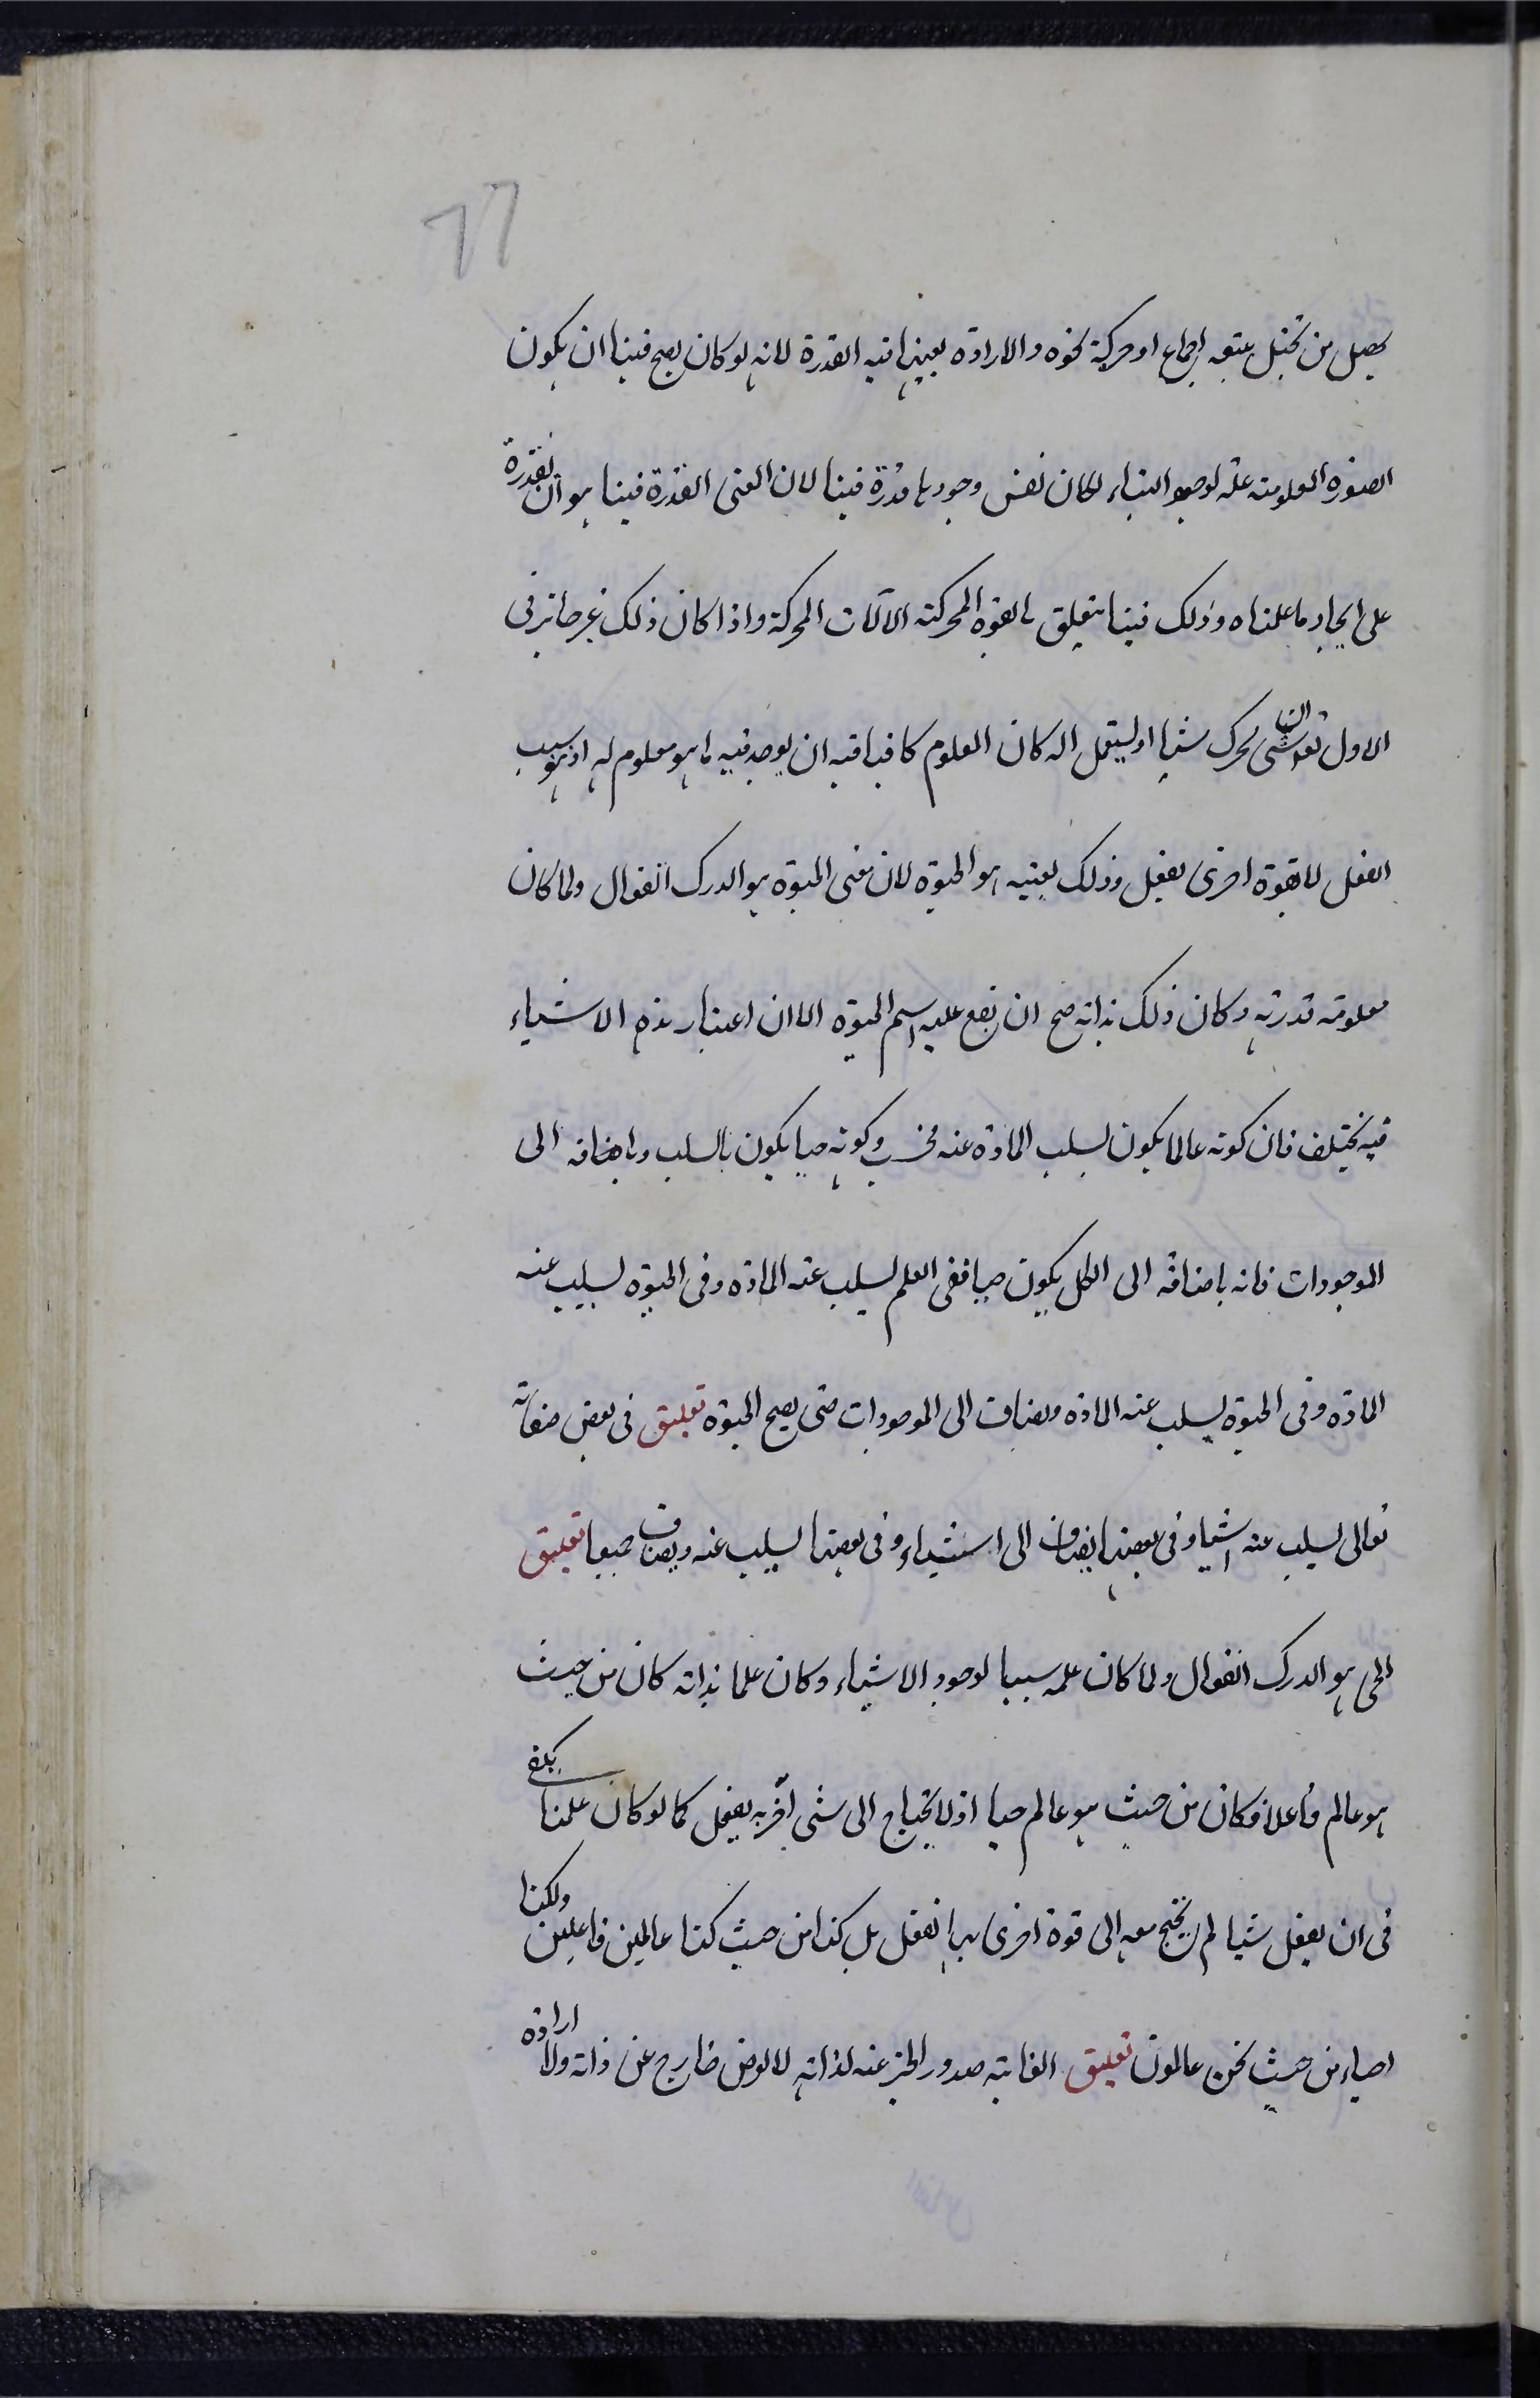 ٦٦
يحصل من تخيل يتبعه اجماع او حركة نحوه والارادة بعينها فيه القدرة لانه لو كان يصح فينا ان يكون
الصورة المعلومته علة لوجود البناء لكان نفس وجودها قدرة فينا لان المعنى القدرة فينا هو ان نقدرة
على ايجاد ما علمناه وذلك فينا يتعلق بالقوة المحركة الالآت المحركة واذا كان ذلك غير جائز فى
الاول يحرك شيئا او يستعمل اله كان المعلوم كافيا فيه ان يوجد فيه ما هو معلوم له اذ هو سبب
الفعل لا بقوة اخرى يفعل وذلك بعينه هو الحيوة لان معنى الحيوة هو الدرك الفعال ولما كان
معلومته قدرته وكان ذلك بذاته صح ان يقع عليه اسم الحيوة الا ان اعتبار هذه الاشياء
فيه يختلف فان كونه عالما يكون بسلب المادة عنه فحسب وكونه حيا يكون بالسلب وباضافه الى
الموجودات فانه باضافة الى الكل يكون حيا ففى العلم يسلب عنه المادة وفى الحيوة يسلب عنه
المادة وفى الحيوة يسلب عنه المادة ويضاف الى الموجودات حتى يصح الحيوة تعليق فى بعض صفاته
تعالى يسلب عنه اشيا وفى بعضها يضاف الى اشياء وفى بعضها يسلب عنه ويضاف جميعا تعليق
الحى هو الدرك الفعال ولما كان علمه سببا لوجود الاشياء وكان علما بذاته كان من حيث
هو عالم فاعلا فكان من حيث هو عالم حيا اذ لا يحتاج الى شى آخر به يفعل كما لو كان علمنا يكفى
فى ان يفعل شيئا لم يحتج معه الى قوة اخرى بها نفعل بل كنا من حيث كنا عالمين فاعلين ولكنا
احياء من حيث نحن عالمون تعليق الغاية صدور الخير عنه لذاته لا لغرض خارج عن ذاته ولا ارادة